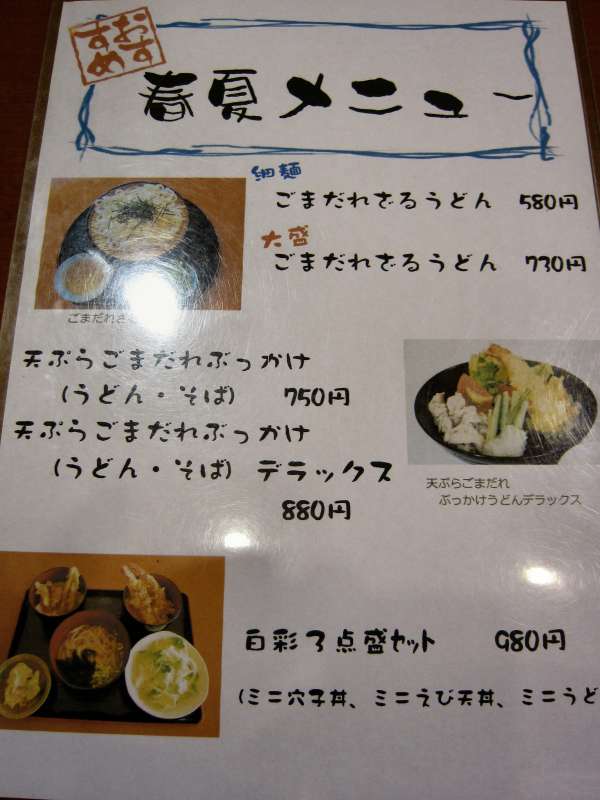 おすすめ
春夏メニュー
細麺
ごまだれざるうどん 580円
大盛
ごまだれざるうどん 730円
ごまだれざ
天ぷらごまだれぶっかけ
(うどん・そば) 750円
天ぷらごまだれぶっかけ
(うどん・そば) デラックス
880円
天ぷらごまだれ
ぶっかけうどんデラックス
白彩3点盛セット 980円
(ミニ穴子丼、ミニえび天丼、ミニうど